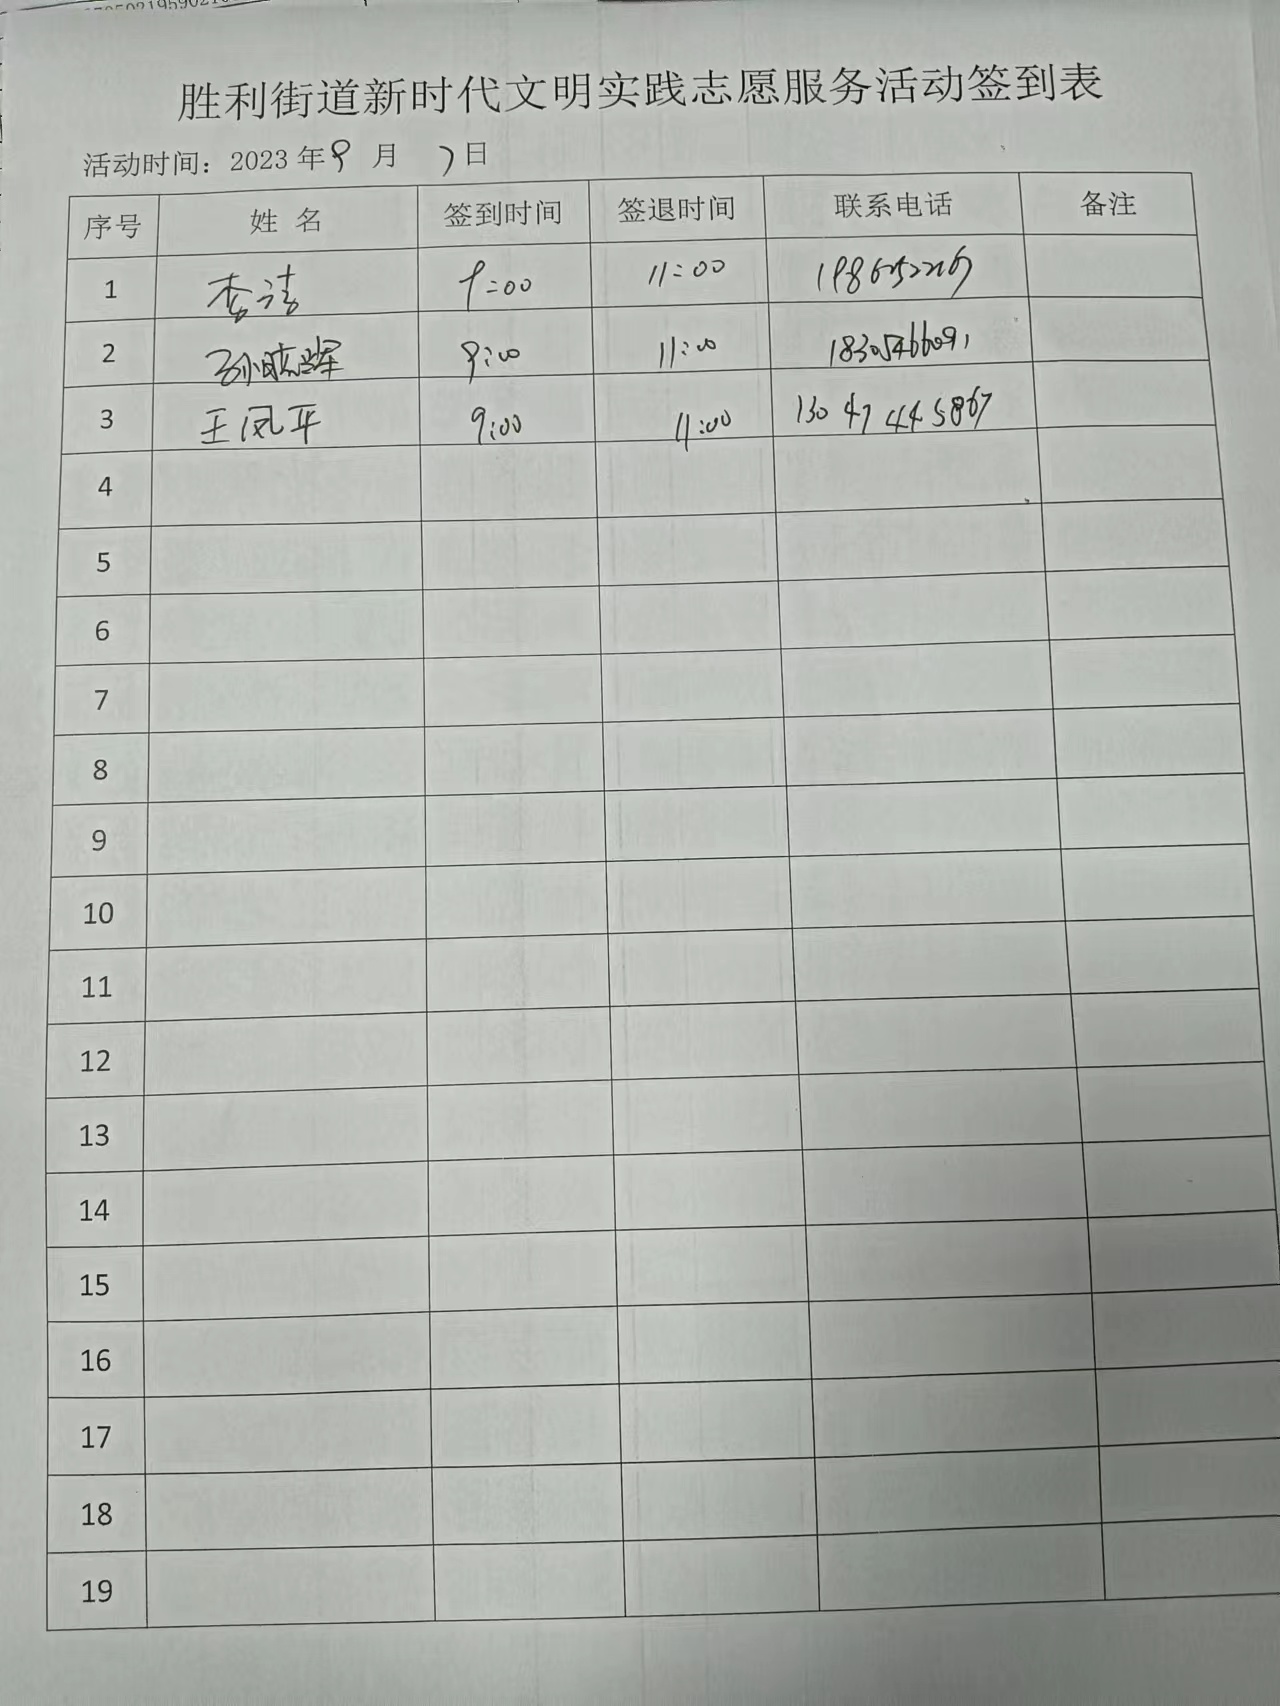 胜利街道新时代文明实践志愿服务活动签到表
活动时间：2023年9月 7日
序号 姓 名 签到时间 签退时间 联系电话 备注
1 李洁 9:00 11:00
2 9:00 11:00 18305466091
3 王凤平 9:00 11:00 13047445867
4
5
6
7
8
9
10
11
12
13
14
15
16
17
18
19